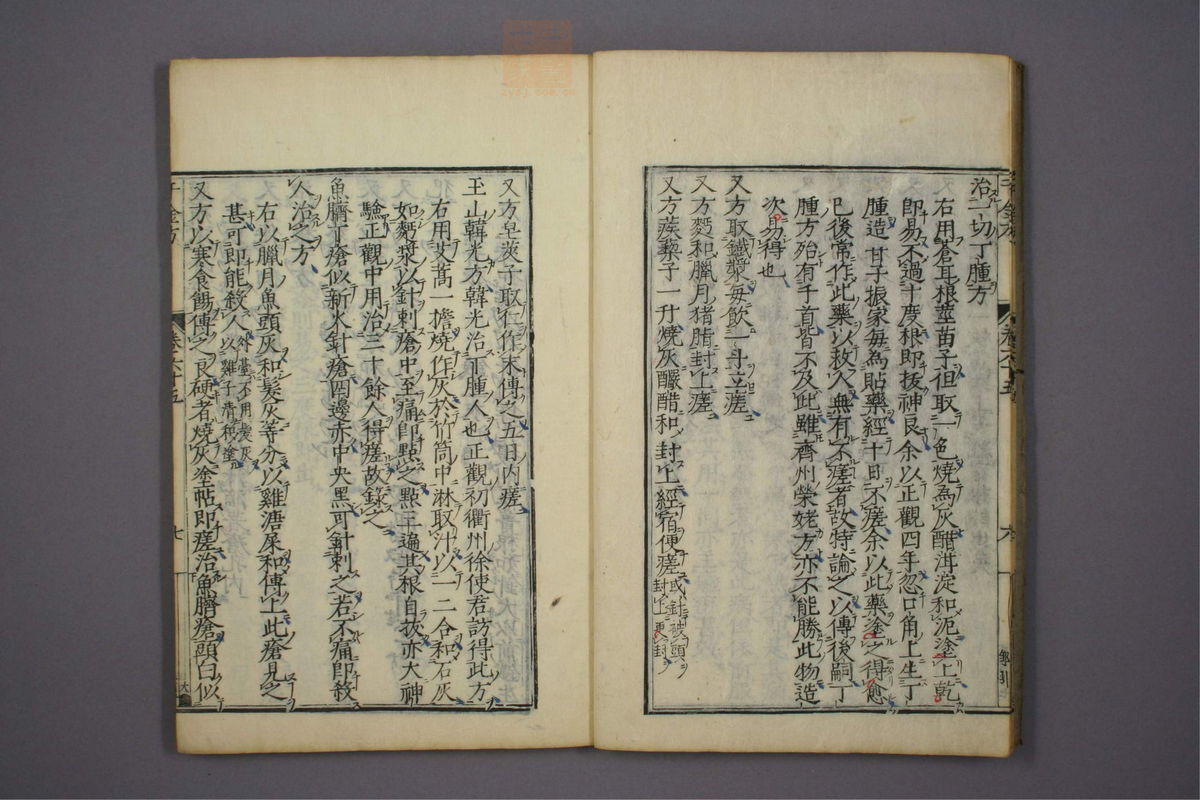 治一切丁腫方
右用蒼耳根莖苗子但取一色燒爲灰醋泔淀和泥塗上乾
即易不過十度根即拔神良余以正觀四年忽口角上生丁
腫造甘子振家毎爲貼藥經十日不瘥余以此藥塗之得愈
已後常作此藥以救人無有不瘥者故特論之以傳後嗣丁
腫方殆有千首皆不及此雖齊州榮姥方亦不能勝此物造
次易得也
又方取鐵漿毎飲一斗立瘥
又方麪和臘月猪脂封上瘥
又方蒺蔾子一升燒灰釅醋和封上經宿便瘥或針破頭封上更封
千金方
卷六十五
六
又方皂莢子取仁作末傅之五日内瘥
玉山韓光方韓光治丁腫人也正觀初衢州徐使君訪得此方
右用艾蒿一擔燒作灰於竹筒中淋取汁以一二合和石灰
如麪漿以針刺瘡中至痛即點之點三遍其根自拔亦大神
驗正觀中用治三十餘人得瘥故錄之
魚臍丁瘡似新火針瘡四邊赤中央黑可針刺之若不痛即殺
人治之方
右以臘月魚頭灰和髮灰等分以雞溏屎和傅上此瘡見之
甚可即能殺人外臺不用髮灰以雞子清和塗
又方以寒食餳傅之良硬者燒灰塗帖即瘥治魚臍瘡頭白似
千金方
卷六十五
七